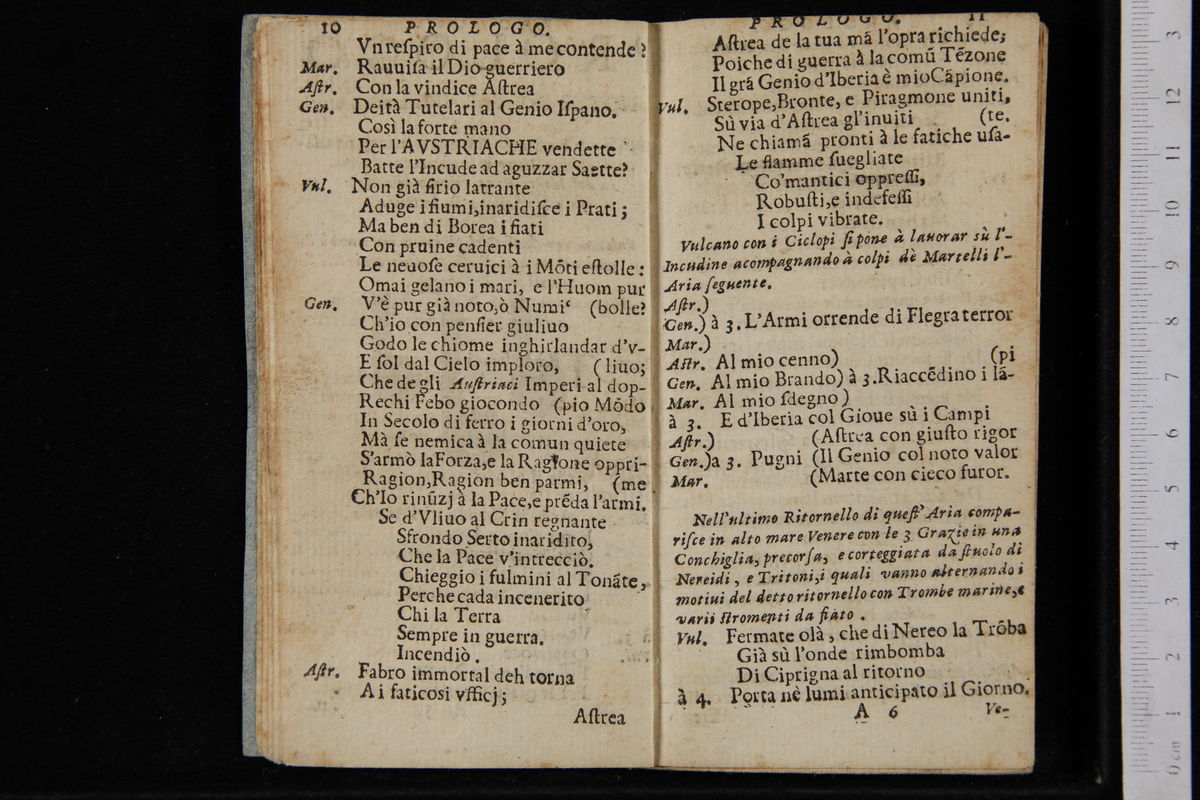 10 PROLOGO.
Vn reſpiro di pace à me contende?
Mar. Rauuiſa il Dio guerriero
Aſtr. Con la vindice Aſtrea
Gen. Deità Tutelari al Genio Iſpano.
Così la forte mano
Per l'AVSTRIACHE vendette
Batte l'Incude ad aguzzar Saette?
Vul. Non già ſirio latrante
Aduge i fiumi, inaridiſce i Prati;
Ma ben di Borea i fiati
Con pruine cadenti
Le neuoſe ceruici à i Mōti eſtolle:
Omai gelano i mari, e l'Huom pur
Gen. V'è pur già noto, ò Numi (bolle?
Ch'io con penſier giuliuo
Godo le chiome inghirlandar d'v-
E ſol dal Cielo imploro, (liuo;
Che degli Auſtriaci Imperi al dop-
Rechi Febo giocondo (pio Mōdo
In Secolo di ferro i giorni d'oro,
Mà ſe nemica à la comun quiete
S'armò la Forza, e la Ragione oppri-
Ragion, Ragion ben parmi, (me
Ch'Io rinūzj à la Pace, e prēda l'armi.
Se d'Vliuo al Crin regnante
Sfrondo Serto inaridito,
Che la Pace v'intrecciò.
Chieggio i fulmini al Tonāte,
Perche cada incenerito
Chi la Terra
Sempre in guerra.
Incendiò.
Aſtr. Fabro immortal deh torna
A i faticosi vfficj;
Aſtrea
PROLOGO. 11
Aſtrea de la tua mā l'opra richiede;
Poiche di guerra à la comū Tēzone
Il grā Genio d'Iberia è mio Cāpione.
Vul. Sterope, Bronte, e Piragmone uniti,
Sù via d'Aſtrea gl'inuiti (te.
Ne chiamā pronti à le fatiche uſa-
Le fiamme ſuegliate
Co'mantici oppreſſi,
Robuſti, e indefeſſi
I colpi vibrate.
Vulcano con i Ciclopi ſi pone à lauorar sù l'-
Incudine acompagnando à colpi dè Martelli l'-
Aria ſeguente.
Aſtr.)
Gen.) à 3. L'Armi orrende di Flegra terror
Mar.)
Aſtr. Al mio cenno) (pi
Gen. Al mio Brando) à 3. Riaccēdino i lā-
Mar. Al mio ſdegno)
à 3. E d'Iberia col Gioue sù i Campi
Aſtr.) (Aſtrea con giuſto rigor
Gen.) a 3. Pugni (Il Genio col noto valor
Mar. (Marte con cieco furor.
Nell'ultimo Ritornello di queſt'Aria compa-
riſce in alto mare Venere con le 3 Grazie in una
Conchiglia, precorſa, e corteggiata da ſtuolo di
Nereidi, e Tritoni, i quali vanno alternando i
motiui del detto ritornello con Trombe marine, e
varii ſtromenti da fiato.
Vul. Fermate olà, che di Nereo la Trōba
Già sù l'onde rimbomba
Di Ciprigna al ritorno
à 4. Porta nè lumi anticipato il Giorno.
A 6 Ve-
0 cm 1 2 3 4 5 6 7 8 9 10 11 12 3